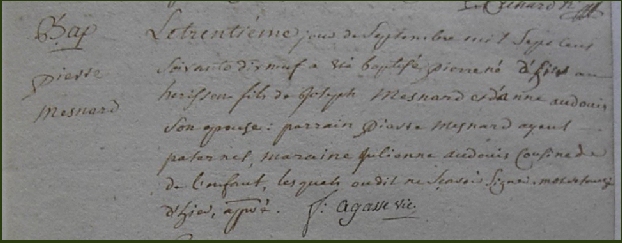 Bap
pierre
mesnard
Le trentième jour de Septembre mil Sept cent
soixante dix neuf a été baptisé pierre né d'hier au
herisson fils de Joseph Mesnard et d'anne audouis
son epouse : parrain pierre mesnard ayeul
paternel, maraine julienne audouis cousine
de l'enfant, lesquels ont dit ne sçavoir signer
d'hier, approuvé. f: agasse vic.